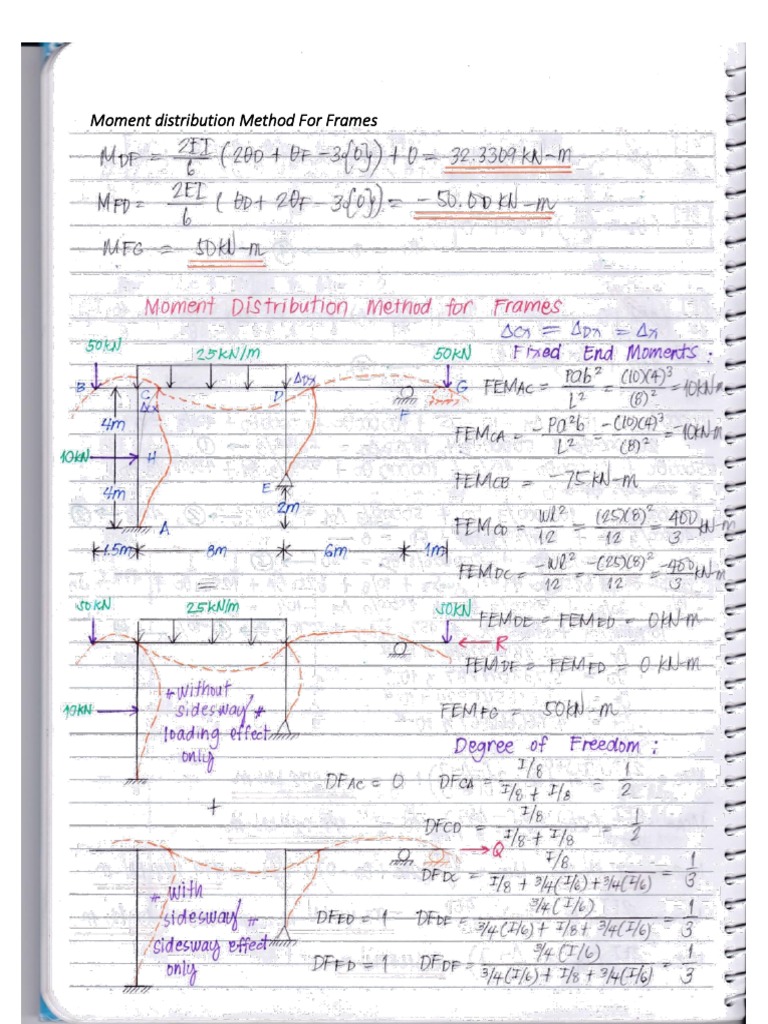 Moment distribution Method For Frames
MDF = 2EI/6 (2θD + θF - 3{0}) + 0 = 32.3309 kN-m
MFD = 2EI/6 (θD + 2θF - 3{0}) = -50.00 kN-m
MFG = 50kN-m
Moment Distribution Method for Frames
ΔCx = ΔDx = Δx
50kN 25kN/m 50kN Fixed End Moments :
B C Δx D ΔDx F G
FEMAC = Pab²/L² = (10)(4)³/(8)² = 10kN-m
4m
FEMCA = -Pa²b/L² = -(10)(4)³/(8)² = -10kN-m
10kN H
FEMCB = -75kN-m
4m E 2m A
FEMCD = WL²/12 = (25)(8)²/12 = 400/3 kN-m
1.5m 8m 6m 1m
FEMDC = -WL²/12 = -(25)(8)²/12 = -400/3 kN-m
50kN 25kN/m 50kN
FEMDE = FEMED = 0kN-m
R
FEMDF = FEMFD = 0 kN-m
10kN
* without sidesway *
loading effect
only
FEMFG = 50kN-m
Degree of Freedom :
DFAC = 0 DFCA = I/8 / (I/8 + I/8) = 1/2
+
DFCD = I/8 / (I/8 + I/8) = 1/2
Q
DFDC = I/8 / (I/8 + 3/4(I/6) + 3/4(I/6)) = 1/3
* with
sidesway *
sidesway effect
only
DFED = 1 DFDE = 3/4(I/6) / (3/4(I/6) + I/8 + 3/4(I/6)) = 1/3
DFFD = 1 DFDF = 3/4(I/6) / (3/4(I/6) + I/8 + 3/4(I/6)) = 1/3